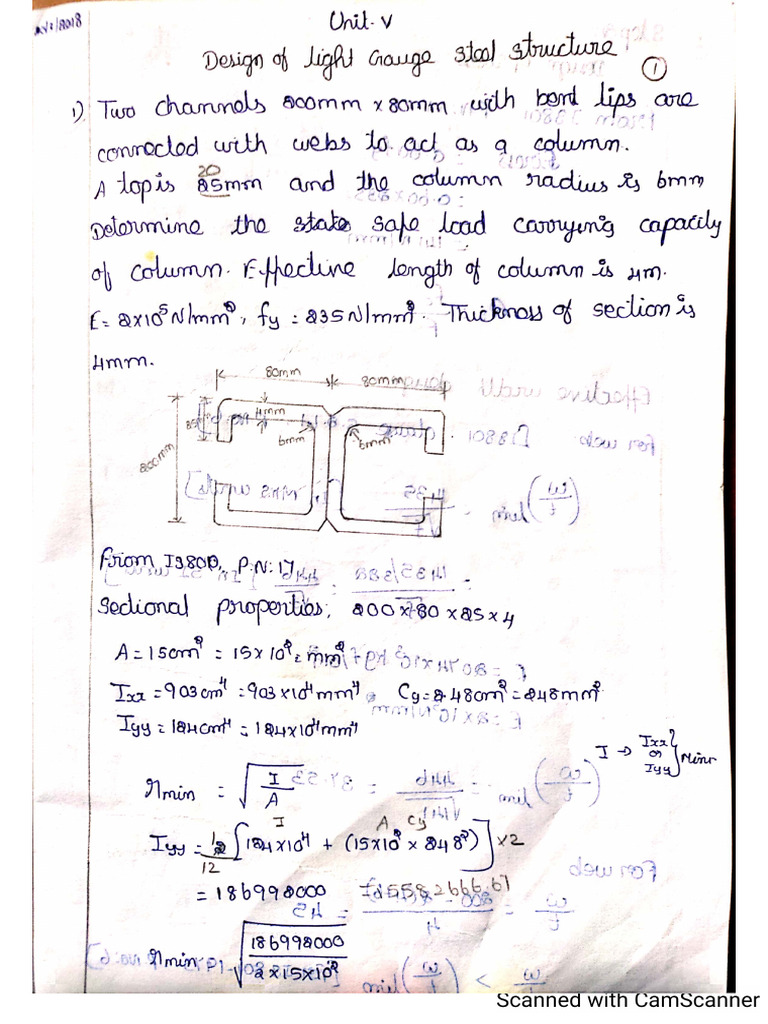 Unit-V
Design of light Gauge steel structure
1
1) Two channels 200mm x 80mm with bend lips are
connected with webs to act as a column.
20
A lop is 25mm and the column radius is 6mm
Determine the safe load carrying capacity
of column. Effective length of column is 4m.
E = 2x10⁵ N/mm², fy = 235 N/mm². Thickness of section is
4mm.
80mm
80mm
4mm
6mm
6mm
200mm
From IS 800, P.N: 17
Sectional properties, 200 x 80 x 25 x 4
A = 15cm² = 15x10² mm²
Ixx = 903cm⁴ = 903x10⁴mm⁴ Cy = 2.48cm² = 248mm²
Iyy = 124cm⁴ = 124x10⁴mm⁴
I → Ixx or Iyy } Minr
rmin = √ I/A
I A Cy
Iyy = 12 [124x10⁴ + (15x10² x 248²)] x2
12
= 186998000 15582666.67
rmin √ 186998000
2x15x10²
Scanned with CamScanner